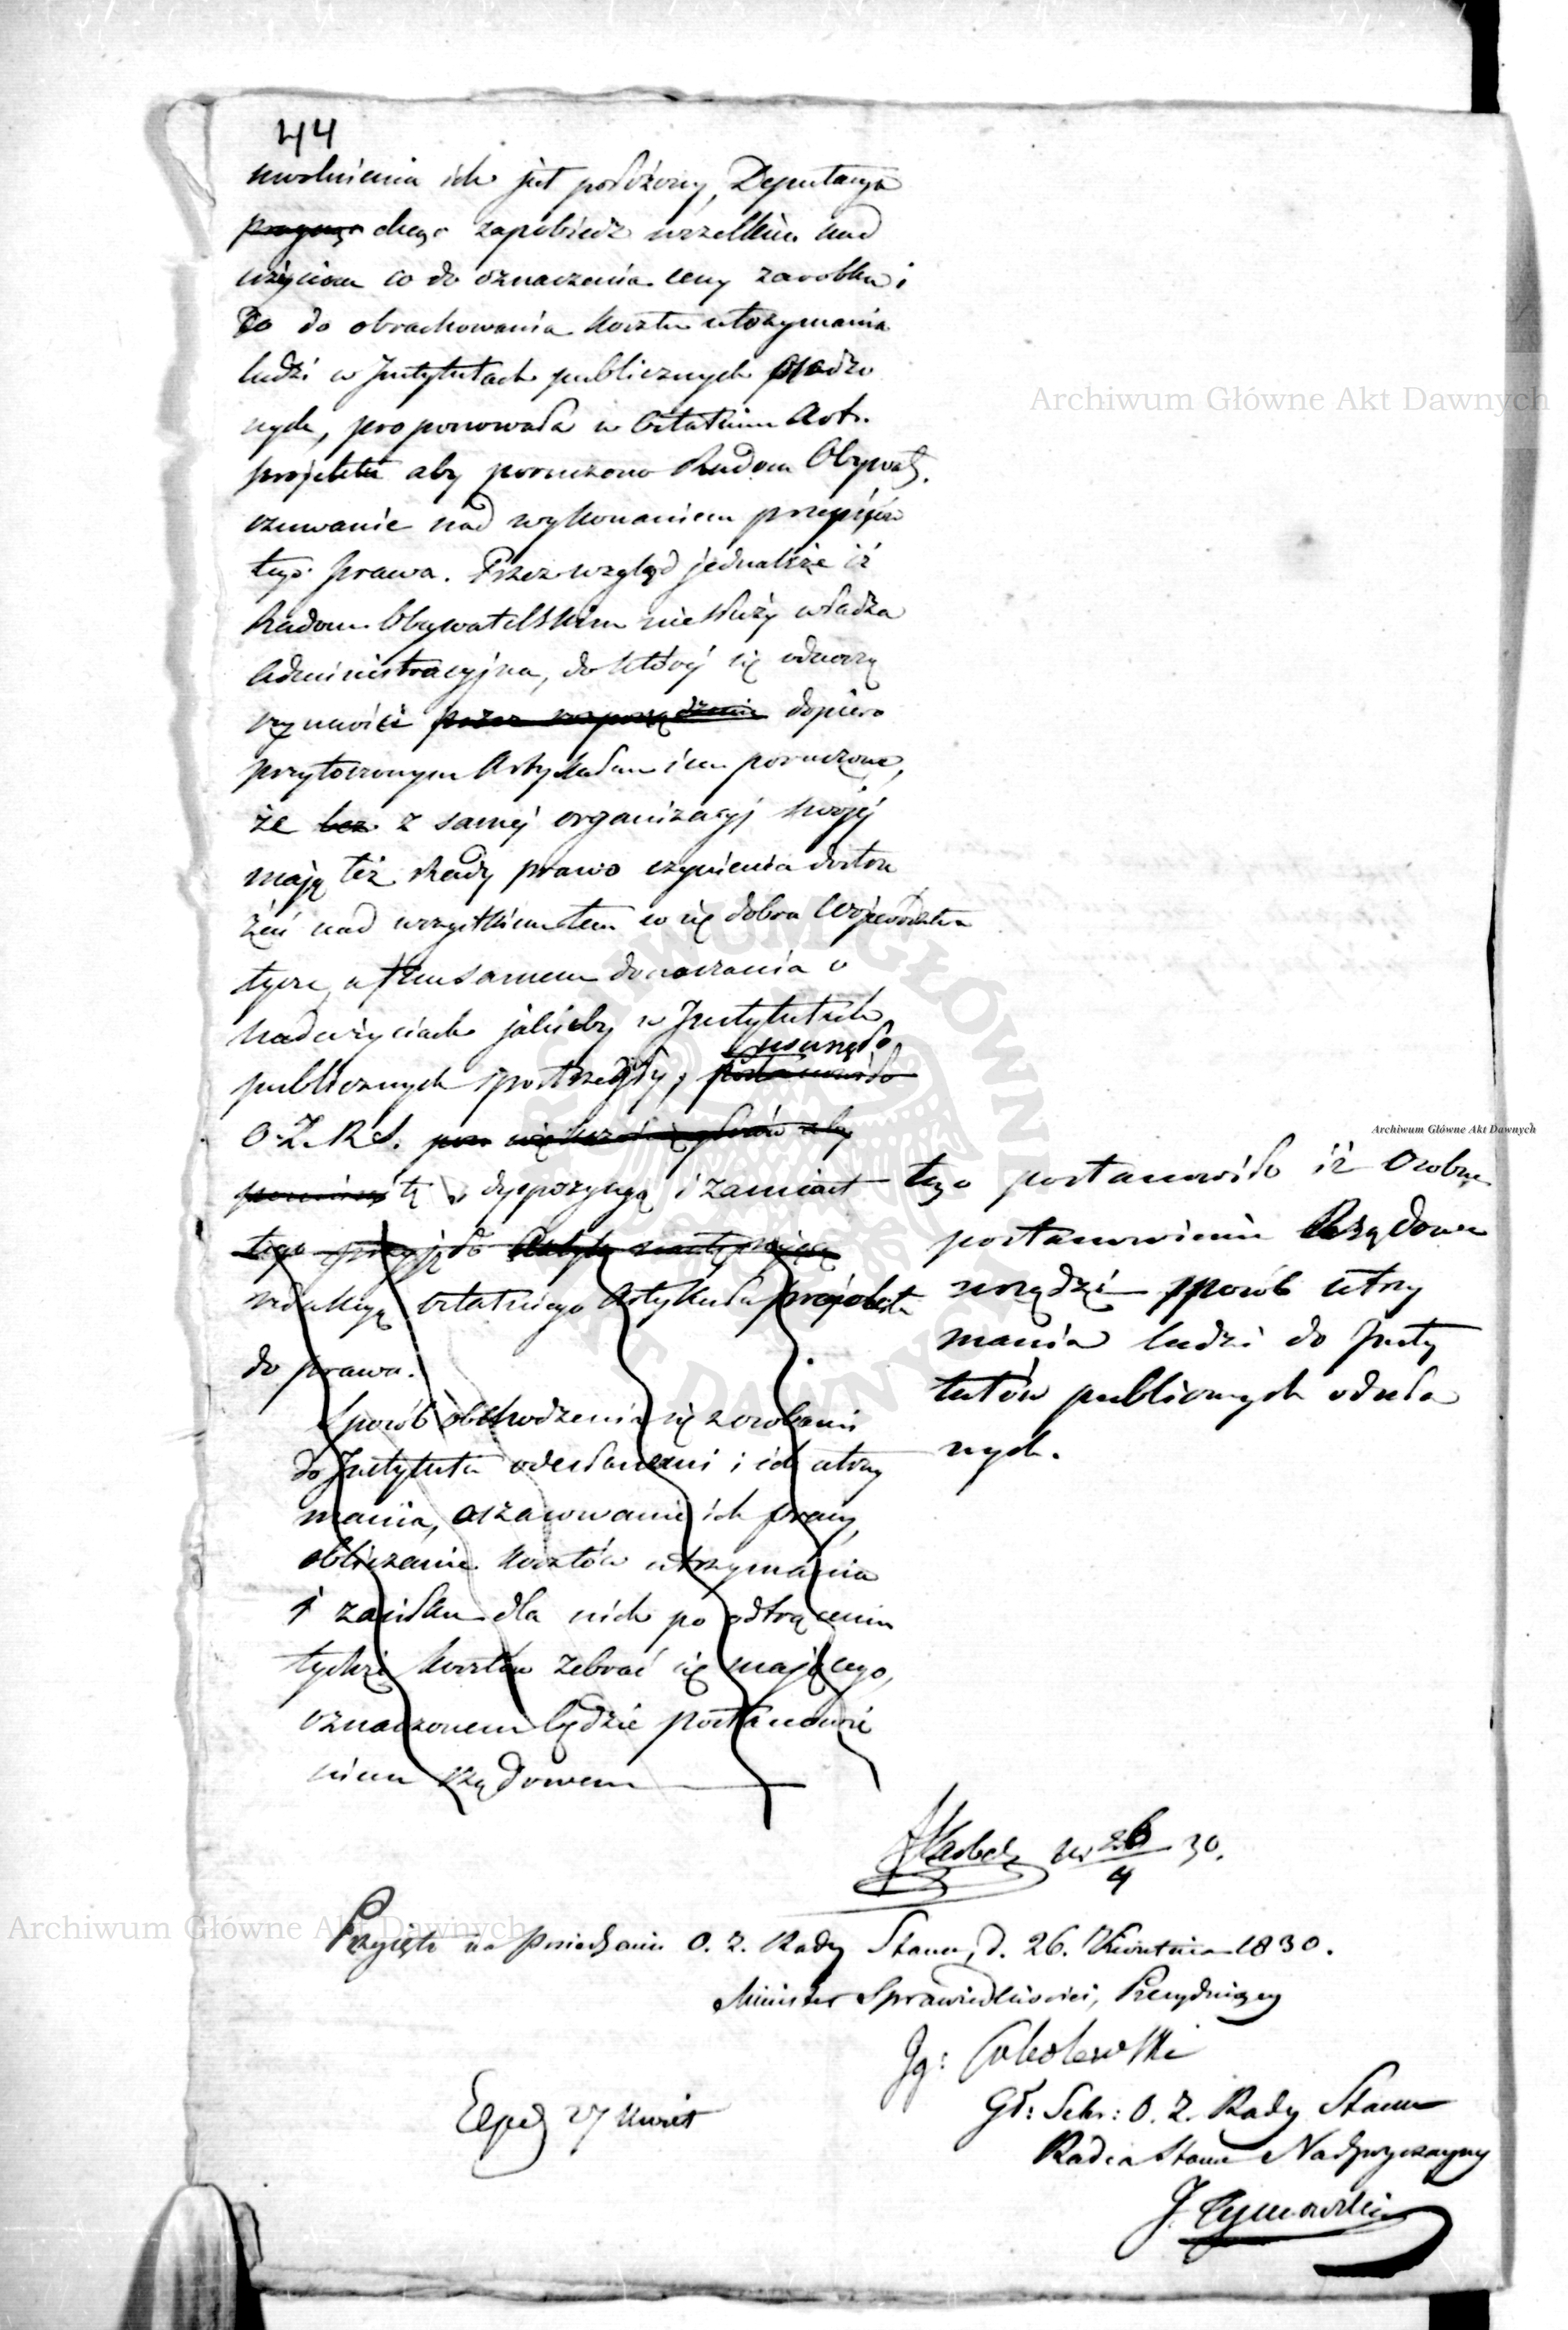 44
uwolnienia ich jest położony, Deputacya
pragnąc chcąc zapobiedz wszelkim nad
użyciom co do oznaczenia ceny zarobku i
co do obrachowania kosztu utrzymania
ludzi w Instytutach publicznych osadzo
nych, proponowała w ostatnim Art.
projektu aby poruczono Radom Obywat.
czuwanie nad wykonaniem przepisów
tego prawa. Przez wzgląd jednakże iż
Radom Obywatelskim nie służy władza
Administracyjna, do której się odnoszą
czynności przez rozporządzenie dopiero
przytoczonym Artykułem im poruczone,
że bez z samej organizacyj swojej
mają też Rady prawo czynienia dostrze
żeń nad wszystkiem tem co się dobra Województwa
tycze, a tem samem donoszenia o
nadużyciach jakieby w Instytutach
usunęło
publicznych spostrzegły; postanowiło
O. Z. R. S. większością głosów aby
tę dyspozycyą i zamiast
tego przyjęło następującą
redakcyą ostatniego Artykułu projektu
do prawa.
Sposób obchodzenia się z osobami
do Instytutu odesłanemi i ich utrzy
mania, oszacowanie ich pracy,
obliczanie kosztów utrzymania
i zasiłku dla nich po odtrąceniu
tychże kosztów zebrać się mającego,
oznaczonem będzie postanowie
niem rządowem
tego postanowiło iż Osobne
postanowienie Rządowe
urządzi sposób utrzy
mania ludzi do Insty
tutów publicznych odesła
nych.
26/4 30.
Przyjęto na posiedzeniu O. Z. Rady Stanu, d. 26. Kwietnia 1830.
Minister Sprawiedliwości, Prezydujący
Ig: Sobolewski
Exped 27 Kwiet
Gł: Sekr: O. Z. Rady Stanu
Radca Stanu Nadzwyczayny
J. Tymowski
Archiwum Główne Akt Dawnych
Archiwum Główne Akt Dawnych
Archiwum Główne Akt Dawnych
ARCHIWUM GŁÓWNE AKT DAWNYCH